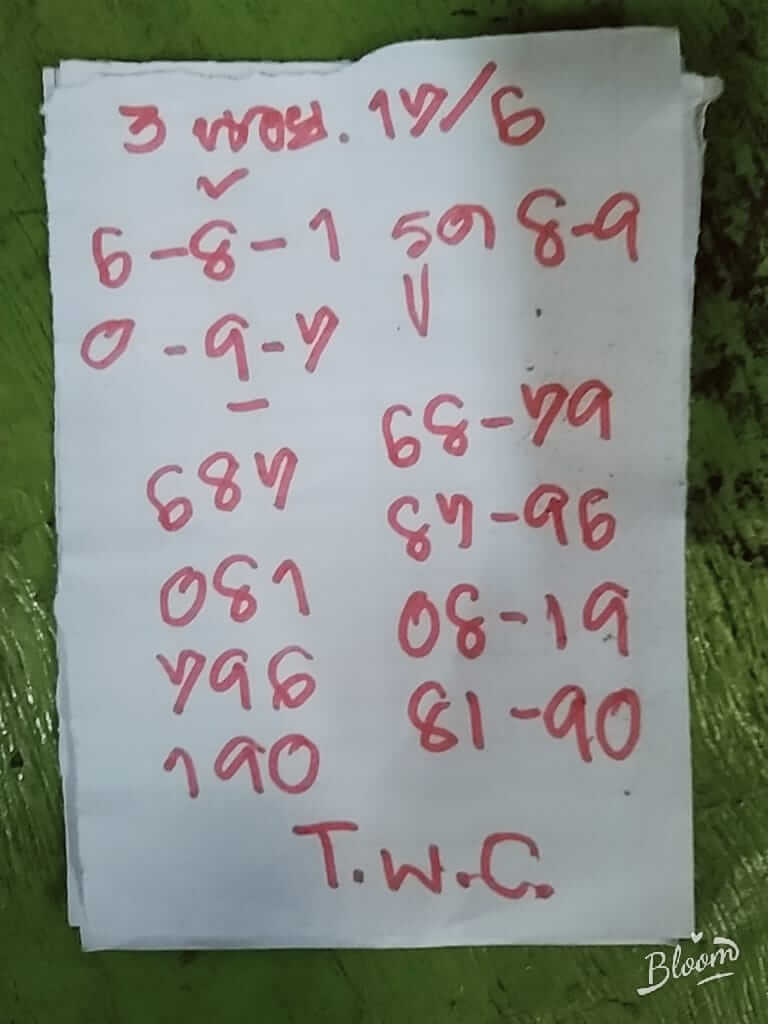 3 หอย. 17/6
6-8-1 รูด 8-9
0-9-7
687
081
796
190
68-79
87-96
08-19
81-90
T.W.C.
Bloom